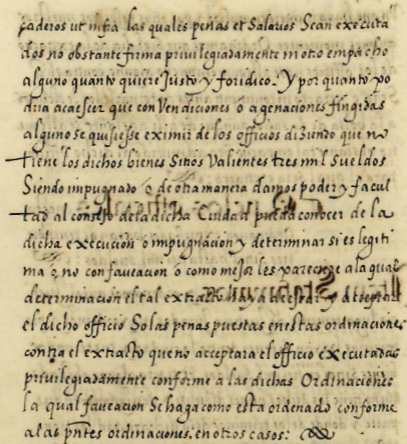 caderos ut infra las quales peñas et Salarios Sean executa
dos no obstante firma privilegiadamente ni otro empacho
alguno quanto quiere Justo y foridico. Y por quanto po
dria acaescer que con Vendiciones o agenaciones fingidas
alguno se quisiesse eximir de los officios diziendo que no
tiene los dichos bienes Sitios Valientes tres mil Sueldos
Siendo impugnado o de otra manera damos poder y facul
tad al consejo de la dicha Ciudad pueda conocer de la
dicha execucion o impugnacion y determinar si es legiti
ma o no con faueacion o como mejor les parecerae a la qual
determinacion el tal extracto haya de estar y acceptar
el dicho officio So las penas puestas en estas ordinaciones
contra el extracto que no acceptara el officio executadas
privilegiadamente conforme a las dichas Ordinaciones
la qual faueacion Se haga como esta ordenado conforme
a las pntes ordinaciones, en otros casos: